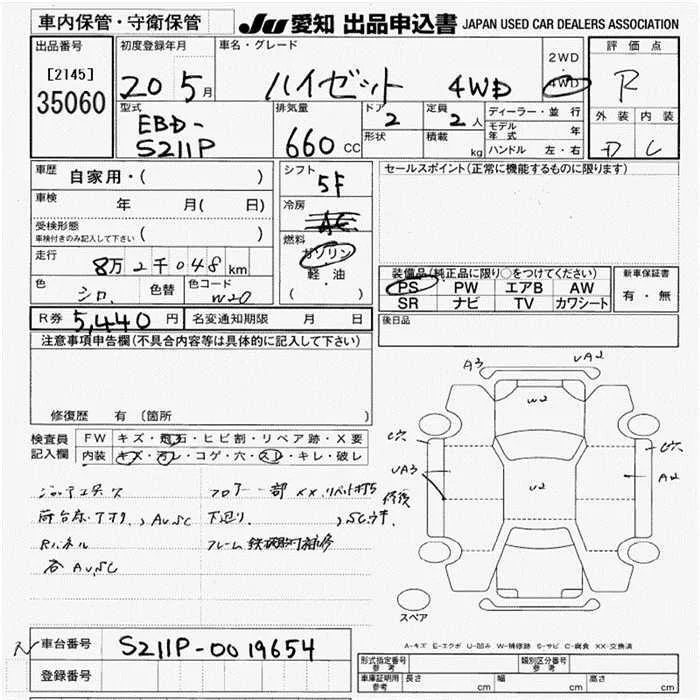 車内保管・守衛保管
JU 愛知 出品申込書 JAPAN USED CAR DEALERS ASSOCIATION
出品番号
[2145]
35060
初度登録年月
20 5月
車名・グレード
ハイゼット 4WD
2WD
・
4WD
評価点
R
外装 内装
D C
型式
EBD-
S211P
排気量
660 CC
ドア
2
定員
2人
形状
積載
kg
ディーラー・並行
モデル年式 年
ハンドル 左・右
車歴
自家用・( )
車検
年 月( 日)
受検形態
車検付きのみ記入して下さい ( )
走行
8万2千048km
色
シロ
色替
色コード
W20
シフト
5F
冷房
AC
燃料
ガソリン
・
軽油
( )
セールスポイント(正常に機能するものに限ります)
装備品(純正品に限り○をつけてください)
PS PW エアB AW
SR ナビ TV カワシート
新車保証書
有・無
R券 5,440円
名変通知期限 月 日
後日品
注意事項申告欄(不具合内容等は具体的に記入して下さい)
修復歴 有〔箇所 〕
検査員
記入欄
FW キズ・飛石・ヒビ割・リペア跡・X要
内装 キズ・汚レ・コゲ・穴・スレ・キレ・破レ
荷台床・アオリ、AU,SC
下廻り
Rパネル
フレーム
AU,SC
A3
UA2
W2
C穴
UA3
U2
C穴
A2
スペア
A-キズ E-エクボ U-凹み W-補修跡 S-サビ C-腐食 XX-交換済
車台番号
S211P-0019654
登録番号
型式指定番号
参考
類別区分番号
参考
車庫証明用
参考
長さ cm
幅 cm
高さ cm